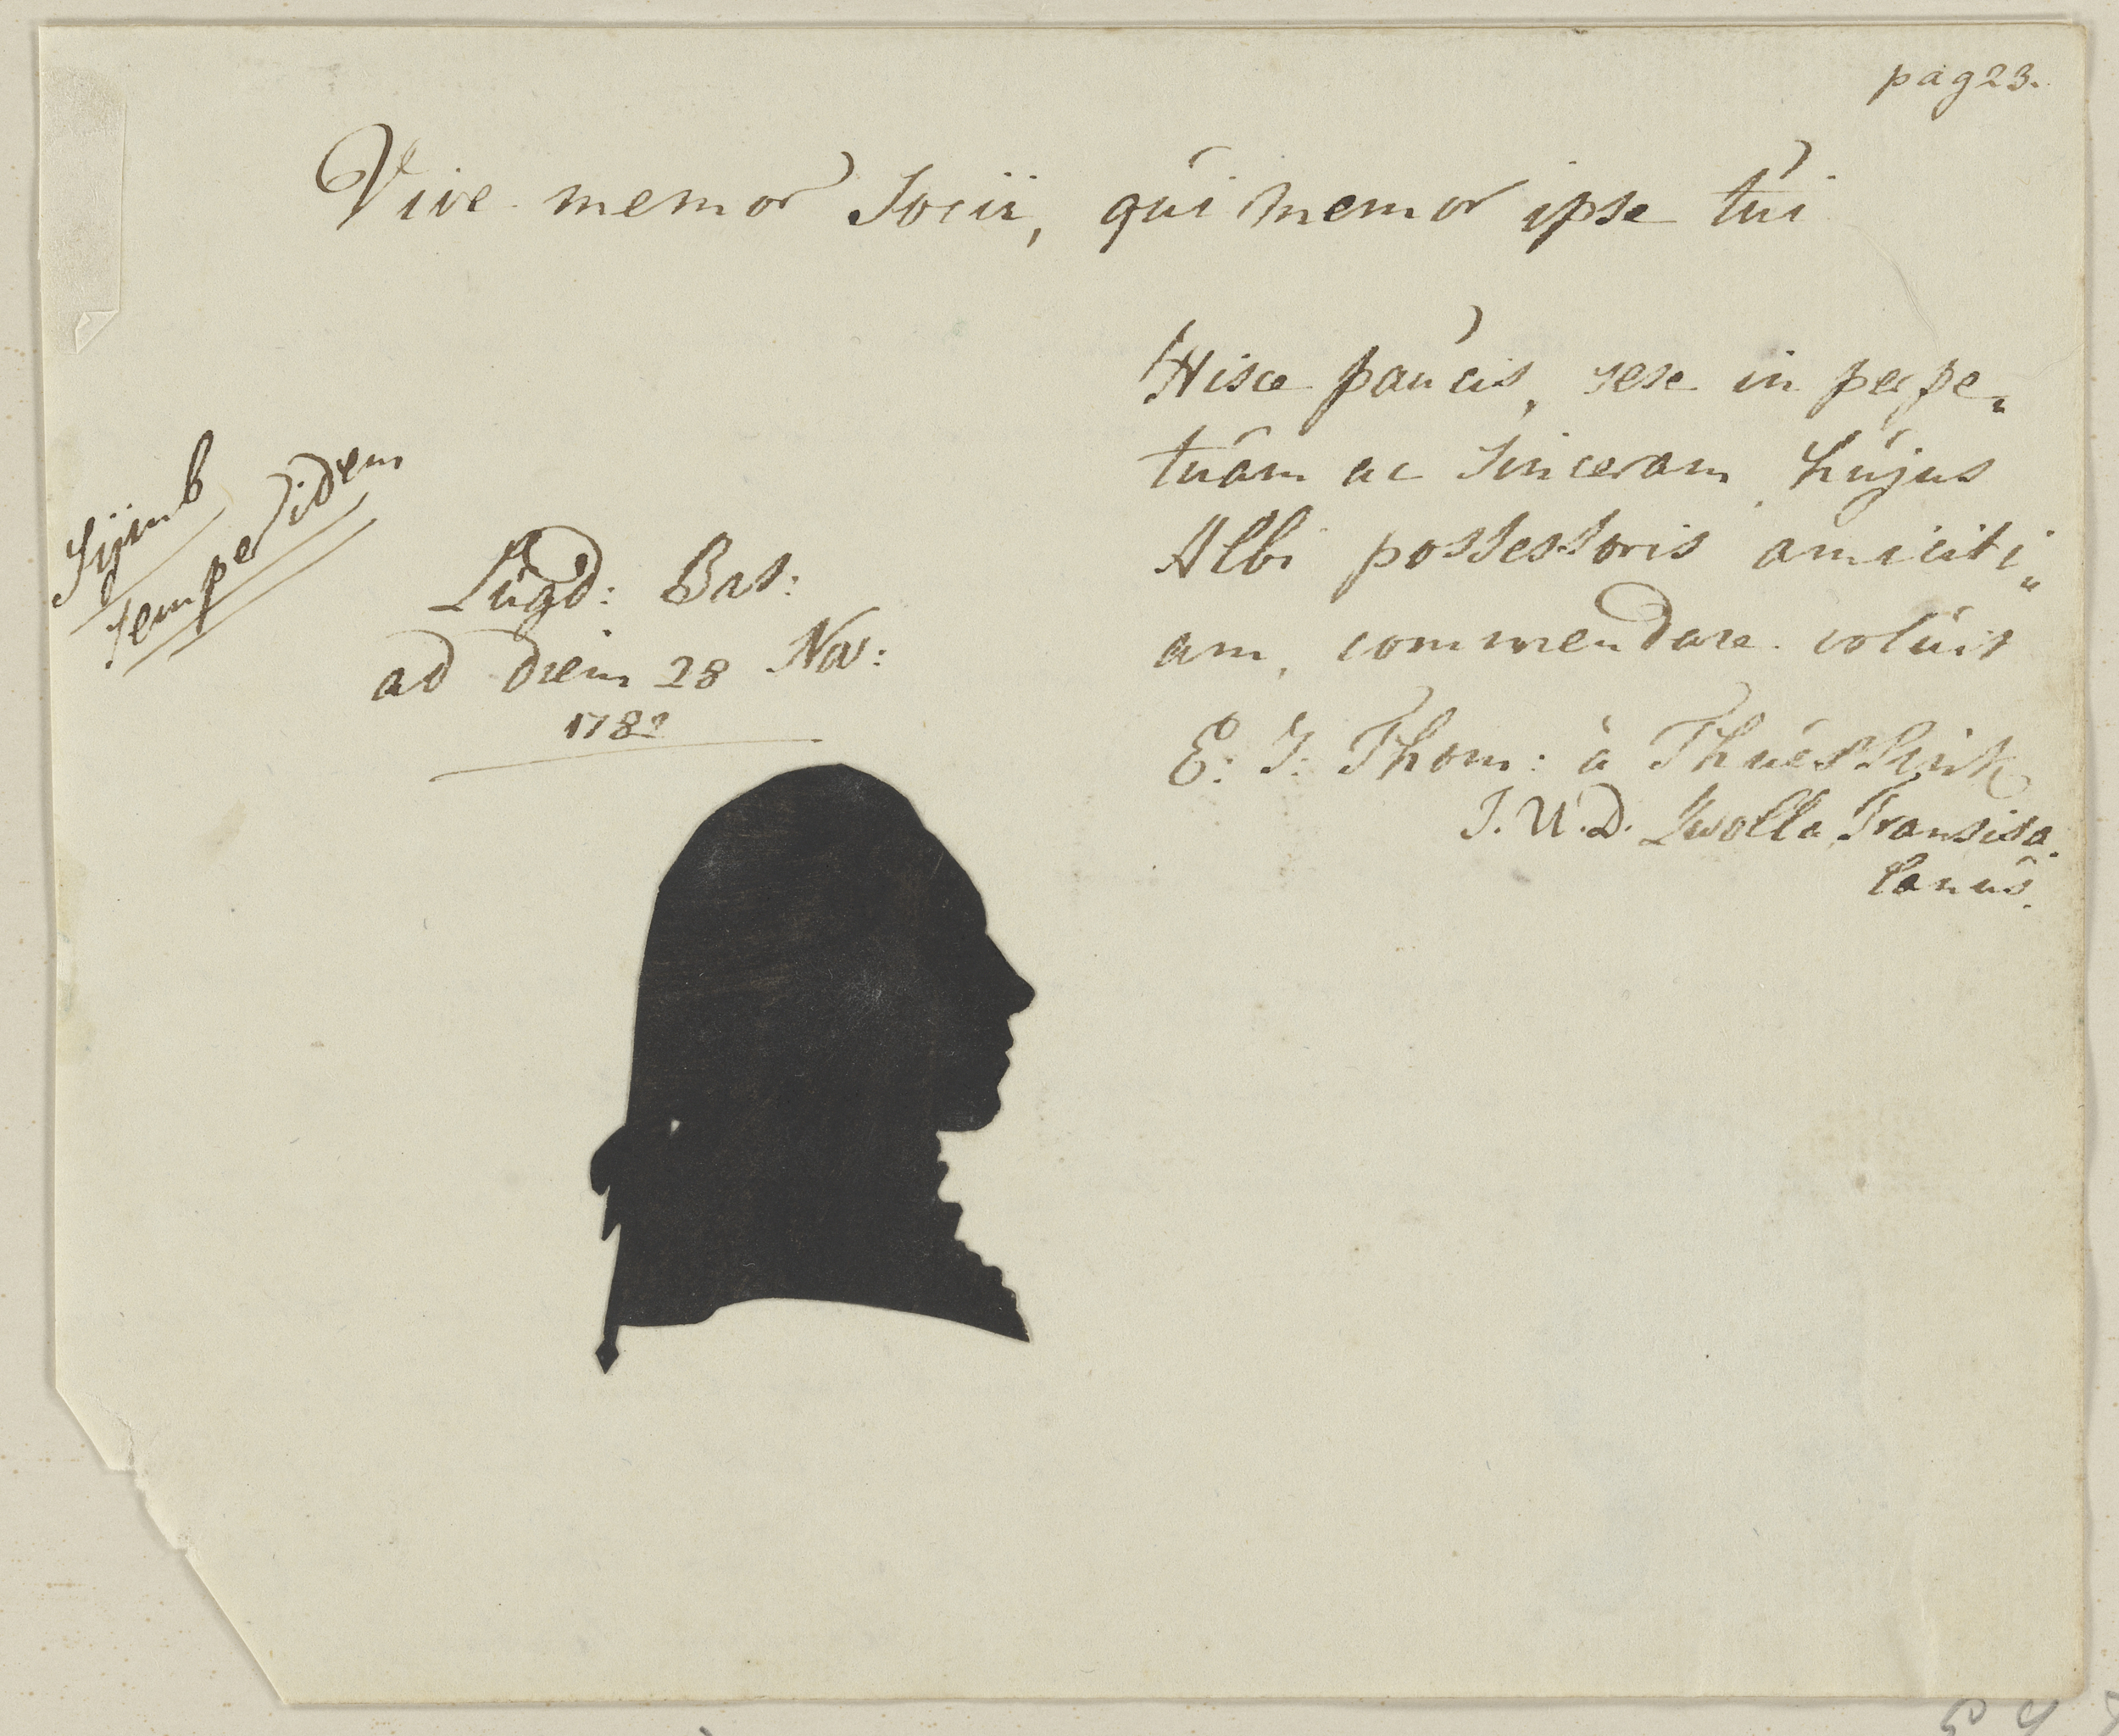 pag 23.
Vive memor Socii, qui memor ipse tui
Hisce paucis, sese in perpe„
tuam ac Sinceram hujus
Albi possessoris amiciti„
am, commendare voluit
E: J: Thom: à Thuessink
J. U. D. Zwolla Transisa„
lanus.
Sijmb
semper idem
Lugd: Bat:
ad diem 28 Nov:
1782